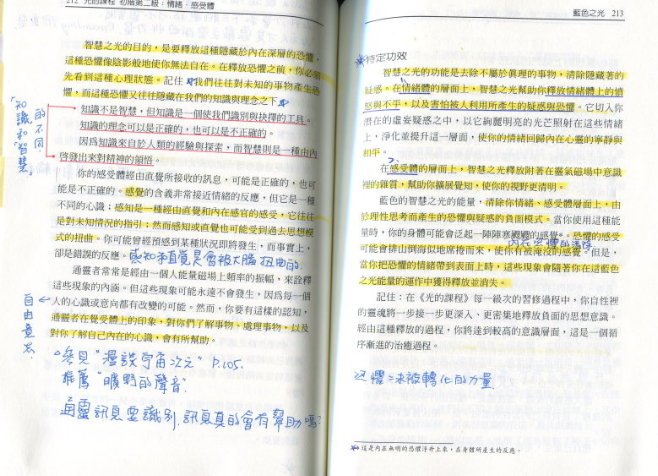 212 光的課程 初階第二級：情緒．感受體
智慧之光的目的，是要釋放這種隱藏於內在深層的恐懼，
這種恐懼像陰影般地使你無法自在。在釋放恐懼之前，你必須
先看到這種心理狀態。記住，我們往往對未知的事物產生恐
懼，而這種恐懼又往往隱藏在我們的知識與理念之下。
知識不是智慧，但知識是一個使我們識別與抉擇的工具。
知識的理念可以是正確的，也可以是不正確的。
因為知識來自於人類的經驗與探索，而智慧則是一種由內
啓發出來對精神的領悟。
知識和智慧的不同
你的感受體經由直覺所接收的訊息，可能是正確的，也可
能是不正確的。感覺的含義非常接近情緒的反應，但它是一種
不同的心識；感知是一種經由直覺和內在感官的感受，它往往
是對未知情況的指引；然而感知或直覺也可能受到過去思想模
式的扭曲。你可能曾經預感到某種狀況即將發生，而事實上，
卻是錯誤的反應。
感知和直覺是會被大腦扭曲的
通靈者常常是經由一個人能量磁場上頻率的振幅，來詮釋
這些現象的內涵。但這些現象可能永遠不會發生，因為每一個
人的心識或意向都有改變的可能。然而，你要有這樣的認知，
通靈者在覺受體上的印象，對你們了解事物、處理事物，以及
對你了解自己內在的心識，會有所幫助。
自由意志
*參見"漫談宇宙次元" P.105.
推薦"曠野的聲音"
通靈訊息要識別，訊息真的會有幫助嗎？
藍色之光 213
特定功效
智慧之光的功能是去除不屬於真理的事物，清除隱藏著的
疑惑。在情緒體的層面上，智慧之光幫助你釋放情緒體上的憤
怒與不平，以及害怕被人利用所產生的疑惑與恐懼。它切入你
潛在的虛妄疑惑之中，以它絢麗明亮的光芒照射在這些情緒
上，淨化並提升這一層面，使你的情緒回歸內在心靈的寧靜與
和平。
在感受體的層面上，智慧之光釋放附著在靈氣磁場中意識
裡的雜質，幫助你擴展覺知，使你的視野更清明。
藍色的智慧之光的能量，清除你情緒、感受體層面上，由
於理性思考而產生的恐懼與疑惑的負面模式。當你使用這種能
量時，你的身體可能會泛起一陣陣寒顫的感覺。恐懼的感覺
可能會排山倒海似地席捲而來，使你有被淹沒的感覺。但是，
當你把恐懼的情緒帶到表面上時，這些現象會隨著你在這藍色
之光能量的運作中獲得釋放並消失。
記住：在《光的課程》每一級次的習修過程中，你自性裡
的靈魂將一步接一步更深入、更密集地釋放負面的思想意識。
經由這種釋放的過程，你將達到較高的意識層面，這是一個循
序漸進的治癒過程。
恐懼冰被轉化的力量
這是內在無明的恐懼浮升上來，在身體所產生的反應。